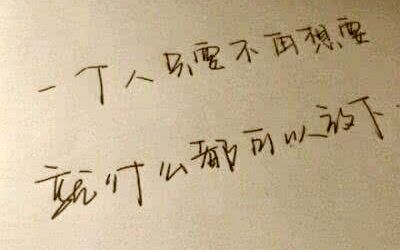 一个人只要不再想要
就什么都可以放下.